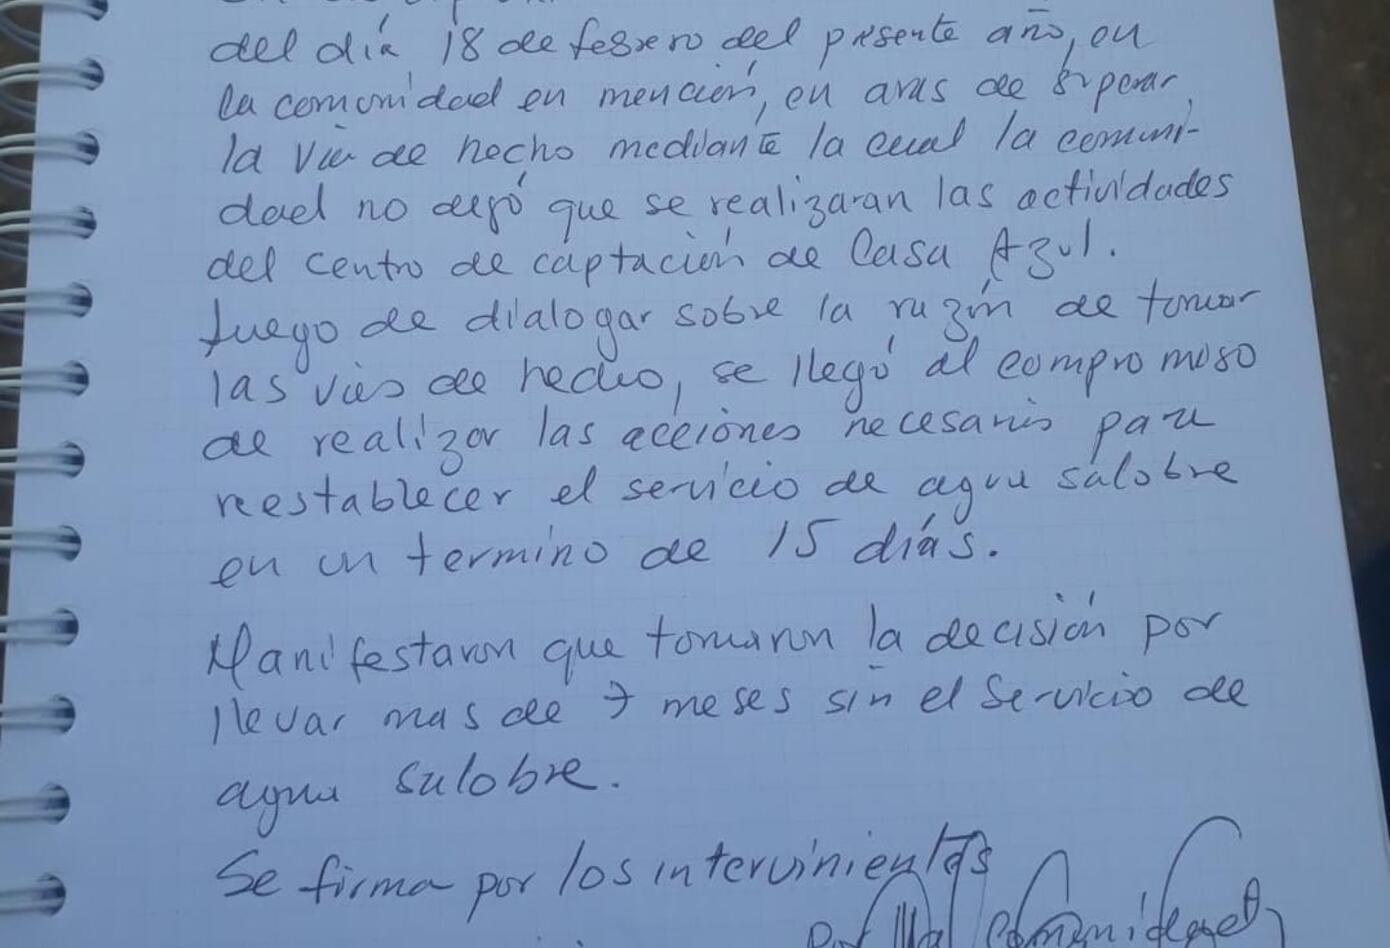 del día 18 de febrero del presente año, en
la comunidad en mención, en aras de superar
la vía de hecho mediante la cual la comuni-
dad no dejó que se realizaran las actividades
del centro de captación de Casa Azul.
Luego de dialogar sobre la razón de tomar
las vías de hecho, se llegó al compromiso
de realizar las acciones necesarias para
reestablecer el servicio de agua salobre
en un termino de 15 días.
Manifestaron que tomaron la decisión por
llevar mas de 7 meses sin el servicio de
agua salobre.
Se firma por los intervinientes
Por la Comunidad